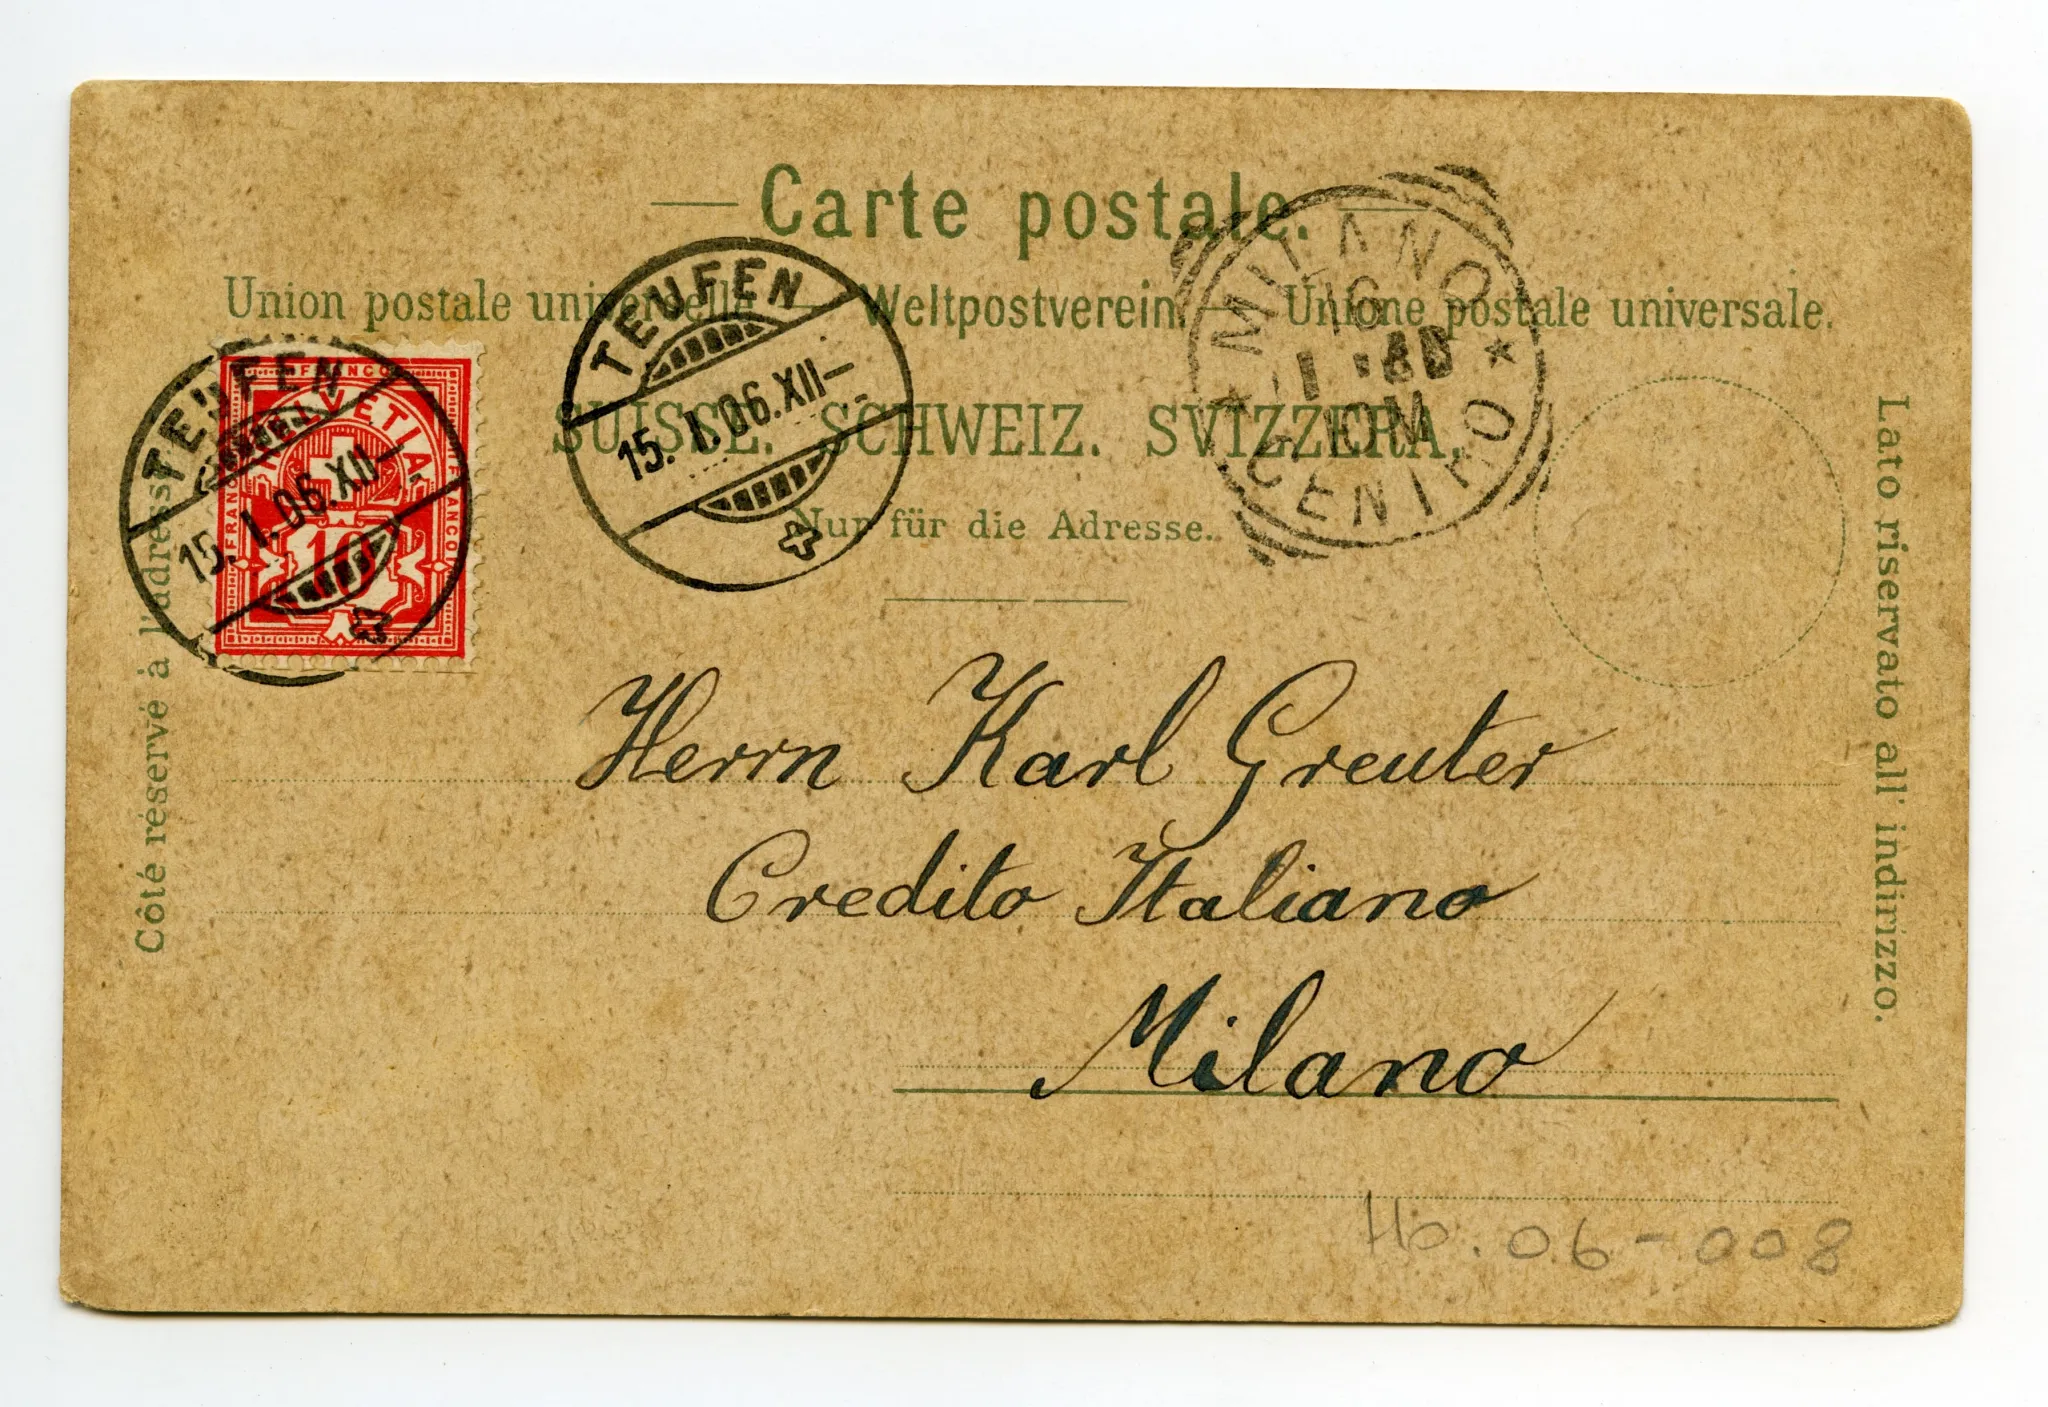 Carte postale.
Union postale universelle — Weltpostverein. — Unione postale universale.
SUISSE. SCHWEIZ. SVIZZERA.
Nur für die Adresse.
Côté réservé à l'adresse
Lato riservato all' indirizzo.
FRANCO
HELVETIA
FRANCO
FRANCO
10
TEUFEN
15. I. 06. XII—
TEUFEN
15. I. 06. XII—
MILANO
16
10M
CENTRO
Herrn Karl Greuter
Credito Italiano
Milano
Hb. 06-008